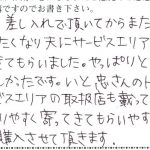 ですのでお書き下さい。
差し入れで頂いてからまた
たくなり夫にサービスエリア
きてもらいました。やっぱりと
しかったです。いと忠さんのト
ビスエリアの取扱店も載って
りやすく寄ってきてもらいやす
購入させて頂きます。